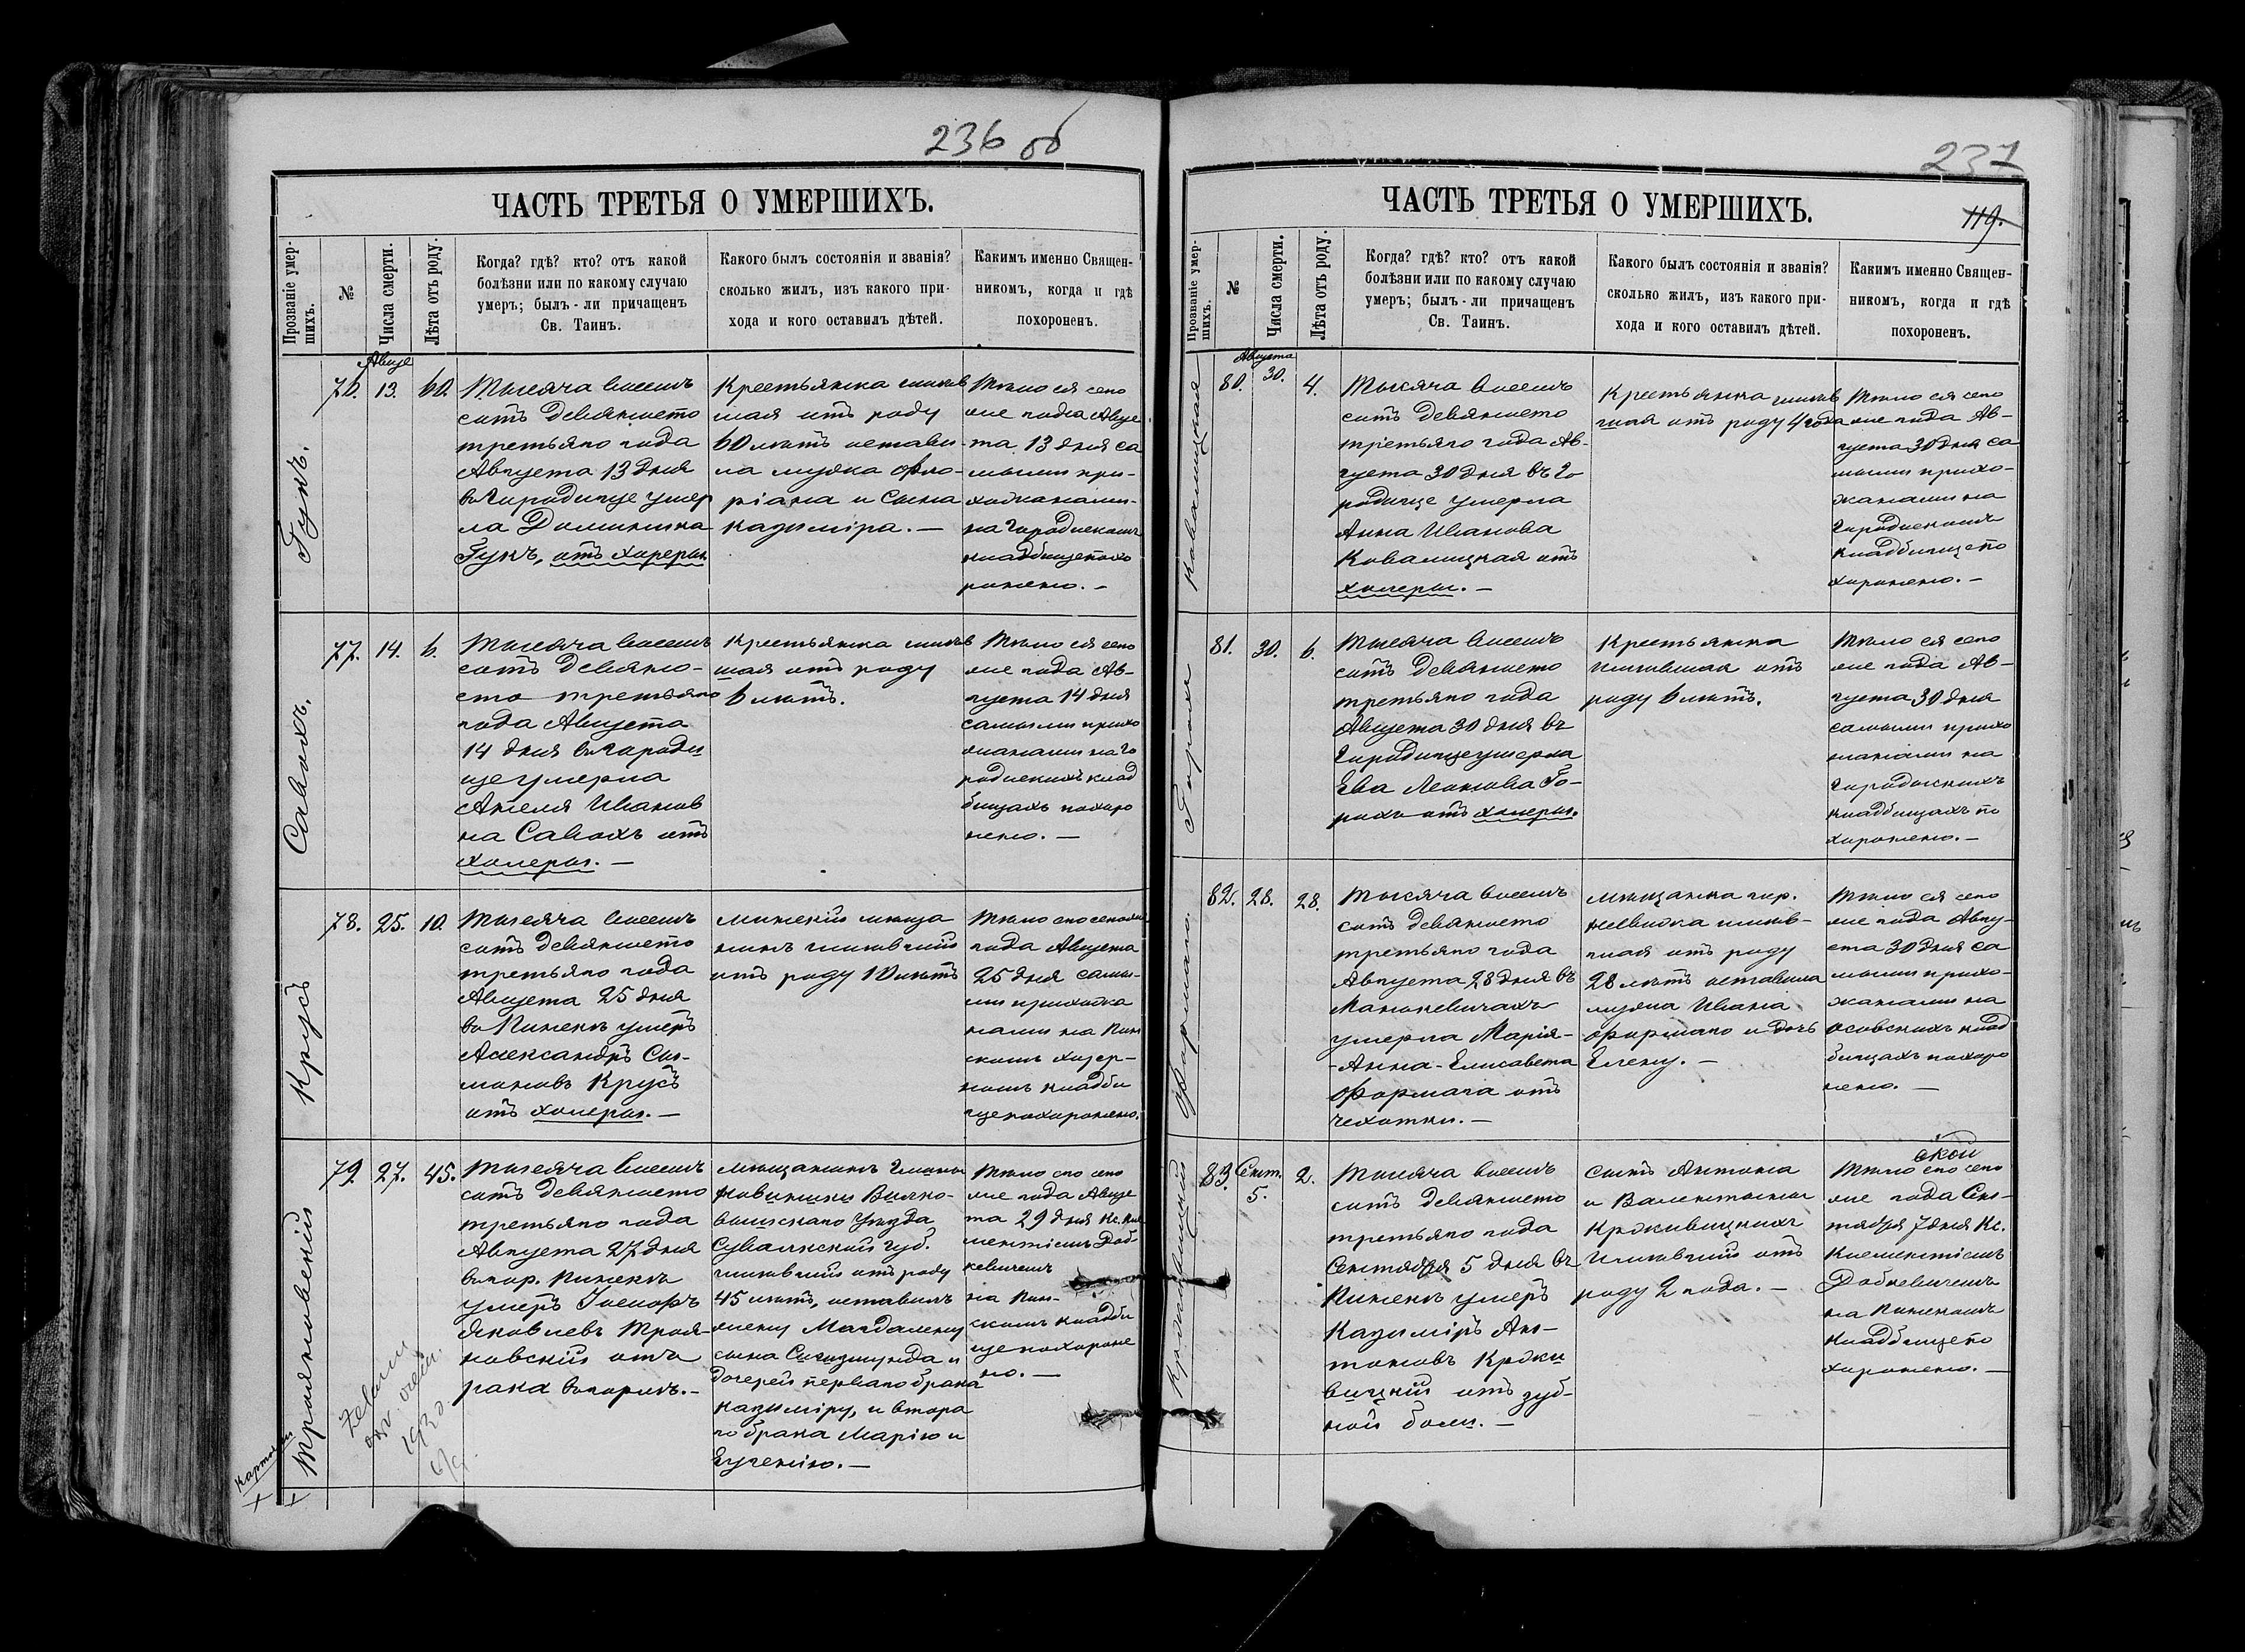 236 об
ЧАСТЬ ТРЕТЬЯ О УМЕРШИХЪ.
Прозваніе умер-
шихъ.
№
Числа смерти.
Лѣта отъ роду.
Когда? гдѣ? кто? отъ какой
болѣзни или по какому случаю
умеръ; былъ-ли причащенъ
Св. Таинъ.
Какого былъ состоянія и званія?
сколько жилъ, изъ какого при-
хода и кого оставилъ дѣтей.
Каким­ъ именно Священ-
никомъ, когда и гдѣ
похороненъ.
Гукъ.
76.
Авгус
13.
60.
Тысяча восемь
сотъ девяносто
третьяго года
Августа 13 дня
въ Городище умер
ла Доминика
Гукъ, отъ холеры
Крестьянка жив
шая отъ роду
60 лѣтъ остави-
ла мужа Фло-
ріана и сына
Казиміра. —
Тѣло ея сего
же года Авгус
та 13 дня са
мыми при-
хожанами
на Городискомъ
кладбищѣ похо
ронено. —
Савохъ.
77.
14.
6.
Тысяча восемь
сотъ девяно-
сто третьяго
года Августа
14 дня въ Городи
ще умерла
Анеля Иванов
на Савохъ отъ
холеры. —
Крестьянка жив
шая отъ роду
6 лѣтъ.
Тѣло ея сего
же года Ав-
густа 14 дня
самыми прихо
жанами на Го
родискихъ клад
бищахъ похоро
нено. —
Крусъ
78.
25.
10.
Тысяча восемь
сотъ девяносто
третьяго года
Августа 25 дня
въ Пинскѣ умеръ
Александръ Си-
моновъ Крусъ
отъ холеры. —
Минскій мѣща
нинъ жившій
отъ роду 10 лѣтъ
Тѣло его сего же
года Августа
25 дня самы-
ми прихожа
нами на Пин
скомъ холер-
номъ кладби
ще похоронено.
Трояновскій
79.
27.
45.
Тысяча восемь
сотъ девяносто
третьяго года
Августа 27 дня
въ гор. Пинскѣ
умеръ Іосифъ
Яковлевъ Троя-
новскій отъ
рака въ горлѣ. —
Мѣщанинъ гмины
Новиники Волко-
вышскаго Уѣзда
Сувалкской губ.
жившій отъ роду
45 лѣтъ, оставилъ
жену Магдалену
сына Сигизмунда и
дочерей перваго брака
Казиміру, и втора
го брака Марію и
Евгенію. —
Тѣло его сего
же года Авгус
та 29 дня Кс. Кле
ментіемъ Доб-
кевичемъ
на Пин-
скомъ кладби
ще похороне
но. —
1930.
237
119.
ЧАСТЬ ТРЕТЬЯ О УМЕРШИХЪ.
Прозваніе умер-
шихъ.
№
Числа смерти.
Лѣта отъ роду.
Когда? гдѣ? кто? отъ какой
болѣзни или по какому случаю
умеръ; былъ-ли причащенъ
Св. Таинъ.
Какого былъ состоянія и званія?
сколько жилъ, изъ какого при-
хода и кого оставилъ дѣтей.
Какимъ именно Священ-
никомъ, когда и гдѣ
похороненъ.
Ковалицкая
80.
Августа
30.
4.
Тысяча восемь
сотъ девяносто
третьяго года Ав-
густа 30 дня въ Го
родище умерла
Анна Иванова
Ковалицкая отъ
холеры. —
Крестьянка жив
шая отъ роду 4 года
Тѣло ея сего
же года Ав-
густа 30 дня са
мыми прихо-
жанами на
Городискомъ
кладбищѣ по
хоронено. —
Горохъ
81.
30.
6.
Тысяча восемь
сотъ девяносто
третьяго года
Августа 30 дня въ
Городище умерла
Ева Леонова Го-
рохъ отъ холеры.
Крестьянка
жившая отъ
роду 6 лѣтъ.
Тѣло ея сего
же года Ав-
густа 30 дня
самыми прихо
жанами на
Городискихъ
кладбищахъ по
хоронено. —
Формаго.
82.
28.
28.
Тысяча восемь
сотъ девяносто
третьяго года
Августа 28 дня въ
Манькевичахъ
умерла Марія-
-Анна-Елисавета
Формага отъ
чехотки. —
Мѣщанка гор.
жив-
шая отъ роду
28 лѣтъ оставила
мужа Ивана
Формаго и дочь
Елену. —
Тѣло ея сего
же года Авгу-
ста 30 дня са
мыми прихо-
жанами на
Осовскихъ клад
бищахъ похоро
нено. —
83.
Сент.
5.
2.
Тысяча восемь
сотъ девяносто
третьяго года
Сентября 5 дня въ
Пинскѣ умеръ
Казиміръ Ан-
тоновъ Крживи
вицкій отъ зуб-
ной боли. —
сынъ Антона
и Валентины
Крживицкихъ
жившій отъ
роду 2 года. —
Тѣло его сего
же года Сен-
тября 7 дня Кс.
Клементіемъ
Добкевичемъ
на Пинскомъ
кладбищѣ по
хоронено. —